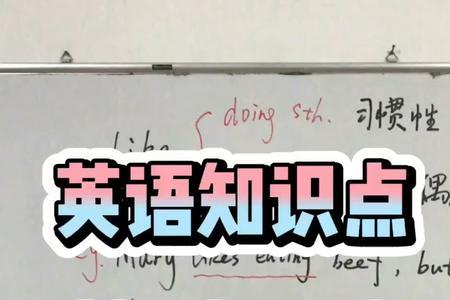 doing sth. 习惯性
like
英语知识点
偶
e.g. Mary likes eating beef, but